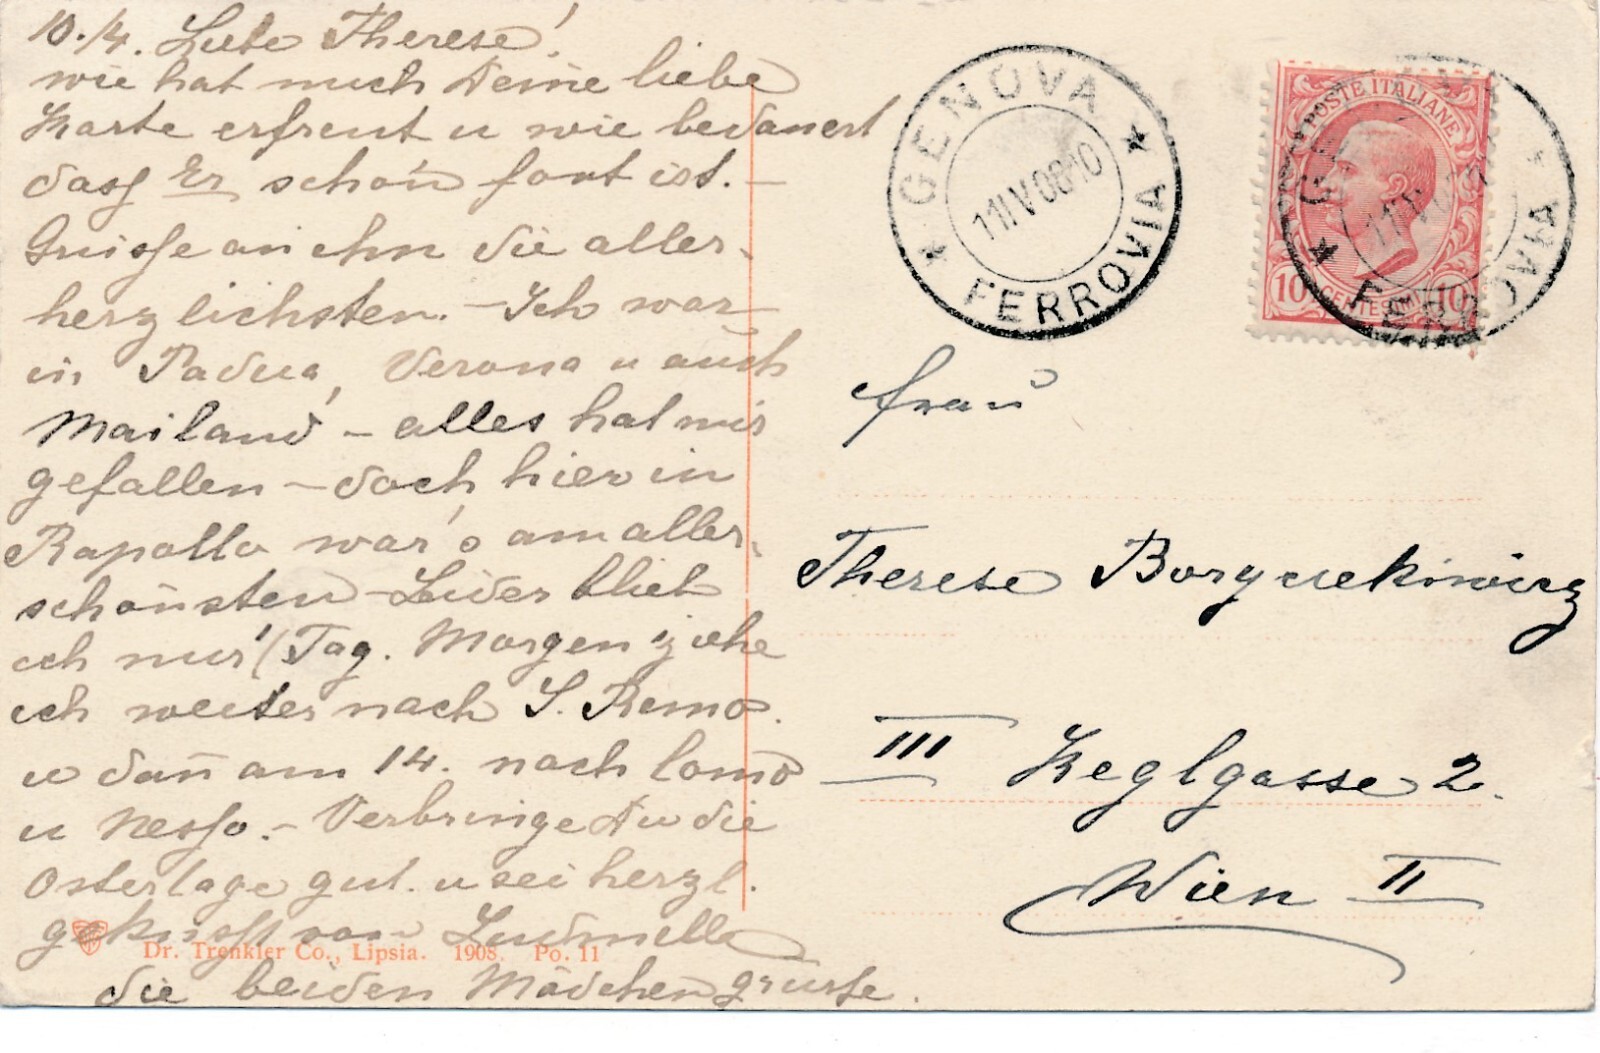 10./4. Liebe Therese!
wie hat mich Deine liebe
Karte erfreut u wie bedauert
dass Er schon fort ist. –
Grüsse an ihn die aller-
herzlichsten. – Ich war
in Padua, Verona u auch
Mailand – alles hat mir
gefallen – doch hier in
Rapallo war's am aller-
schönsten – Leider blieb
ich nur 1 Tag. Morgen ziehe
ich weiter nach S. Remo.
u dan̄ am 14. nach Como
u Nesso. – Verbringe Du die
Ostertage gut. u sei herzl.
geküsst von Ludmilla
die beiden Mädchen grüsse.
Dr. Trenkler Co., Lipsia. 1908. Po. 11
GENOVA
11 IV 08 10
★ FERROVIA ★
POSTE ITALIANE
10 CENTESIMI 10
GENOVA
★ FERROVIA ★
Frau
Therese
III Keglgasse 2.
Wien II